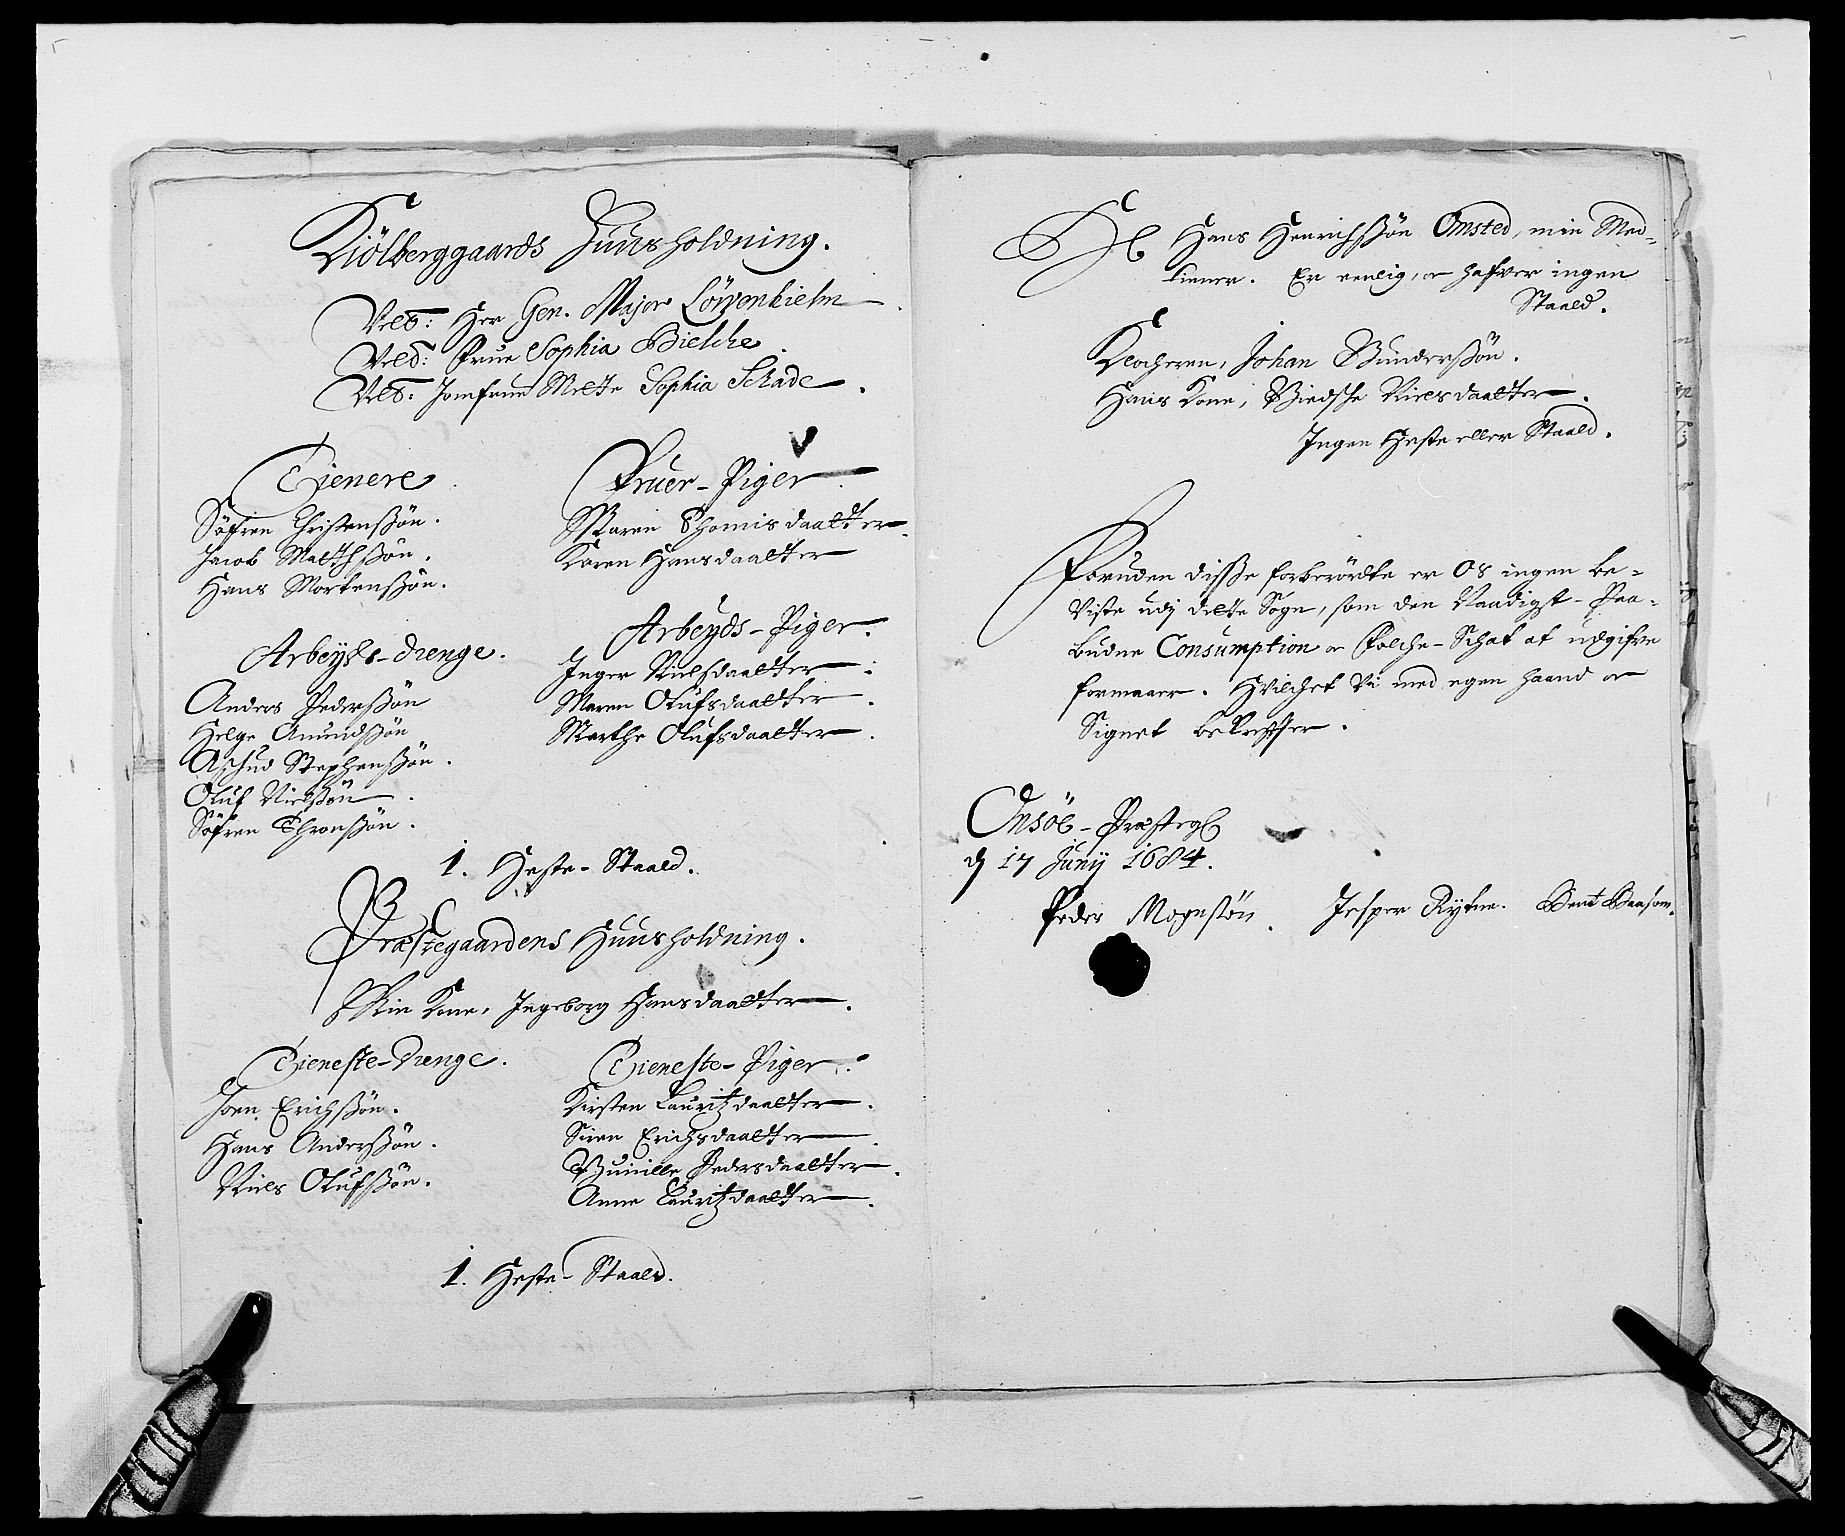 Kiölberggaards Huusholdning.
Velb: Her Gen. Major Löwenhielm
Velb: Frue Sophia Bielche.
Velb: Jomfrue Mette Sophia Schade.
Tienere.
Söfren Christenßön.
Jacob Malthßön.
Hans Mortenßön.
Arbeyds-drenge.
Anders Pederßön
Helge Amundßön
Stephenßön.
Oluf Nielßön.
Söfren Thronßön.
Fruer-Piger.
Maren Thomisdaatter.
Karen Hansdaatter
Arbeyds-Piger.
Inger Nielsdaatter.
Maren Olufsdaatter.
Marthe Olufsdaatter.
1. Heste-Staald.
Præstegaardens Huusholdning.
Min Kone, Ingeborg Hansdaatter.
Tieneste-drenge.
Joen Erichßön.
Hans Anderßön.
Niels Olufßön.
Tieneste-Piger.
Kirsten Lauritzdaatter.
Siren Erichsdaatter.
Gunille Pedersdaatter.
Anne Lauritzdaatter.
1. Heste-Staald.
Hr Hans Henrichßön Omsted, min Med-
tiener. Er eenlig, oc hafver ingen
Staald.
Klocheren, Johan Gunderßön.
Hans Kone, Nielsdaatter.
Ingen Heste eller Staald.
Foruden diße forberördte er Os ingen be-
viste udj dette Sogn, som den Naadigst-Paa-
budne Consumption oc Folche-Schat at udgifve
formaaer. Hvilchet Vi med egen haand oc
Signet bekrefter.
Onsöe-Præstegl
d 17 Junij 1684.
Peder Mogensön. Jesper Bent